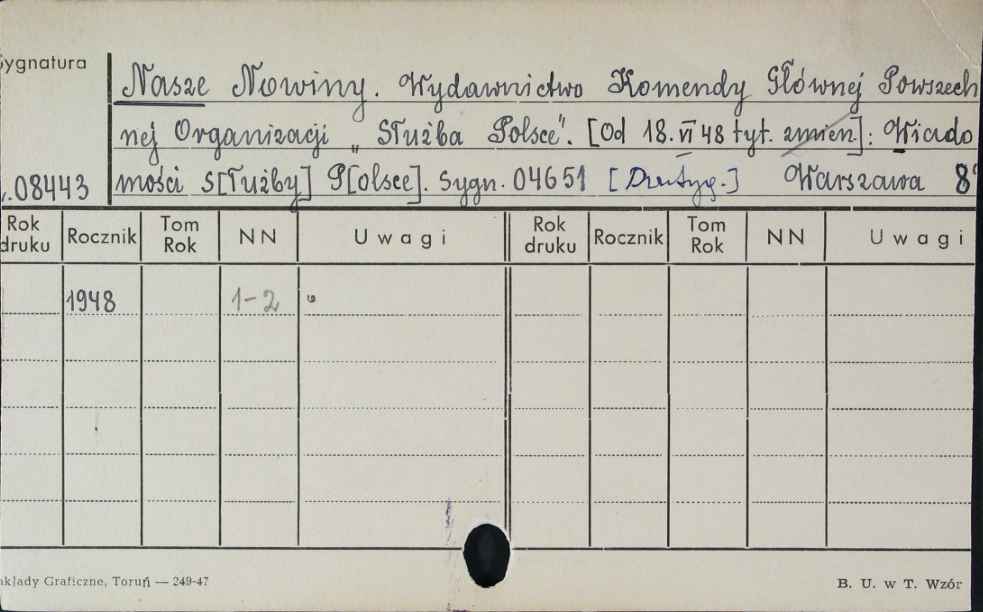 Sygnatura
Nasze Nowiny. Wydawnictwo Komendy Głównej Powszech
nej Organizacji „Służba Polsce". [Od 18.VI 48 tyt. zmien]: Wiado
mości S[łużby] P[olsce]. Sygn. 04651 [Dwutyg.] Warszawa 8°
.08443
Rok druku Rocznik Tom Rok NN Uwagi Rok druku Rocznik Tom Rok NN Uwagi
1948 1-2
akłady Graficzne, Toruń — 249-47
B. U. w T. Wzór